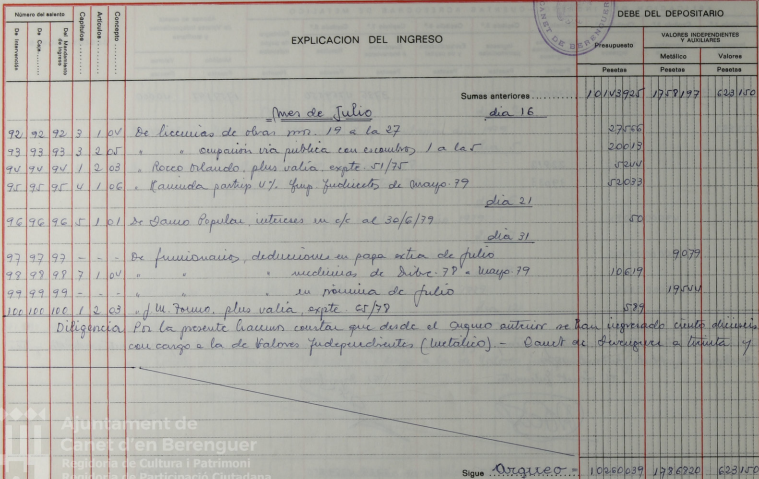 Número del asiento
Capítulos
Artículos
Concepto
EXPLICACION DEL INGRESO
DEBE DEL DEPOSITARIO
De Intervención
De Caja
Del Mandamiento de ingreso
Presupuesto
VALORES INDEPENDIENTES Y AUXILIARES
Metálico
Valores
Pesetas Pesetas Pesetas
CANET DE BERENGUER
Sumas anteriores 10143925 1758197 623150
Mes de Julio día 16
92 92 92 3 1 04 De licencias de obras nos. 19 a la 27 27566
93 93 93 3 2 05 " " ocupación vía pública con escombros 1 a la 5 20013
94 94 94 1 2 03 " Rocco Orlando, plus valía, expte 51/75 5244
95 95 95 4 1 06 " Hacienda particip. 4% Imp. Indirectos de Mayo-79 52033
día 21
96 96 96 5 1 01 De Banco Popular, intereses en c/c al 30/6/79 50
día 31
97 97 97 - - - De funcionarios, deducciones en paga extra de julio 9079
98 98 98 7 1 04 " " medicinas de Dibre-78 a Mayo-79 10619
99 99 99 - - - " " en nómina de julio 19544
100 100 100 1 2 03 " J M. plus valía, expte. 65/78 589
Diligencia Por la presente hacemos constar que desde el Arqueo anterior se han ingresado ciento dieciseis
con cargo a la de Valores Independientes (Metálico).- Canet de Berenguer a treinta y
Sigue Arqueo - 10260039 1786820 623150
Ajuntament de
Canet d'en Berenguer
Regidoria de Cultura i Patrimoni
Regidoria de Participació Ciutadana